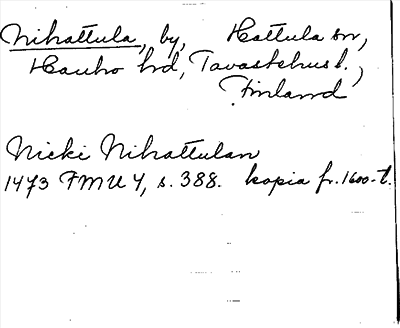 Nihattula, by, Hattula sn,
Hauho hd, Tavastehus l.,
Finland
Nicki Nihattulan
1473 FMU 4, s. 388. kopia fr. 1600-t.